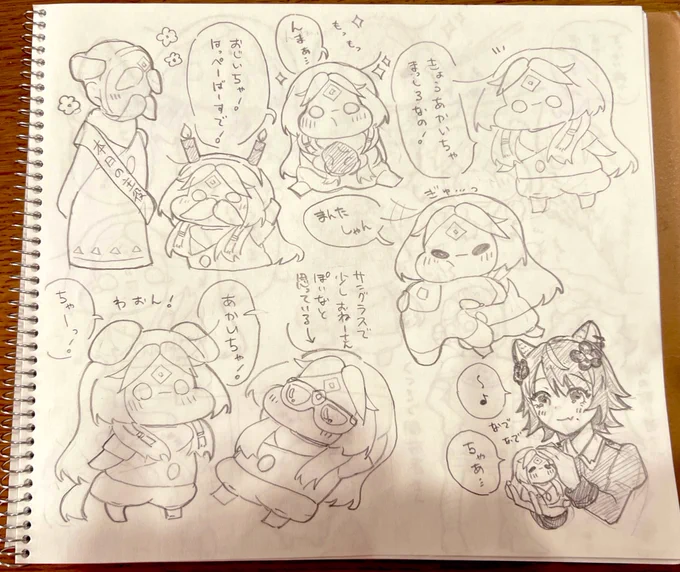 きょうもあかいちゃ
まっしろなの!
もっもっ
んまぁ…
おじいちゃ!
はっぴーばーすで!
本日の主役
ぎゅ…っ
まんた
しゃん
サングラスで
少しおねーさん
ぽいなと
思っている→
あかいちゃ!
わおん!
ちゃーっ!
〜♪
なで
なで
ちゃあ…